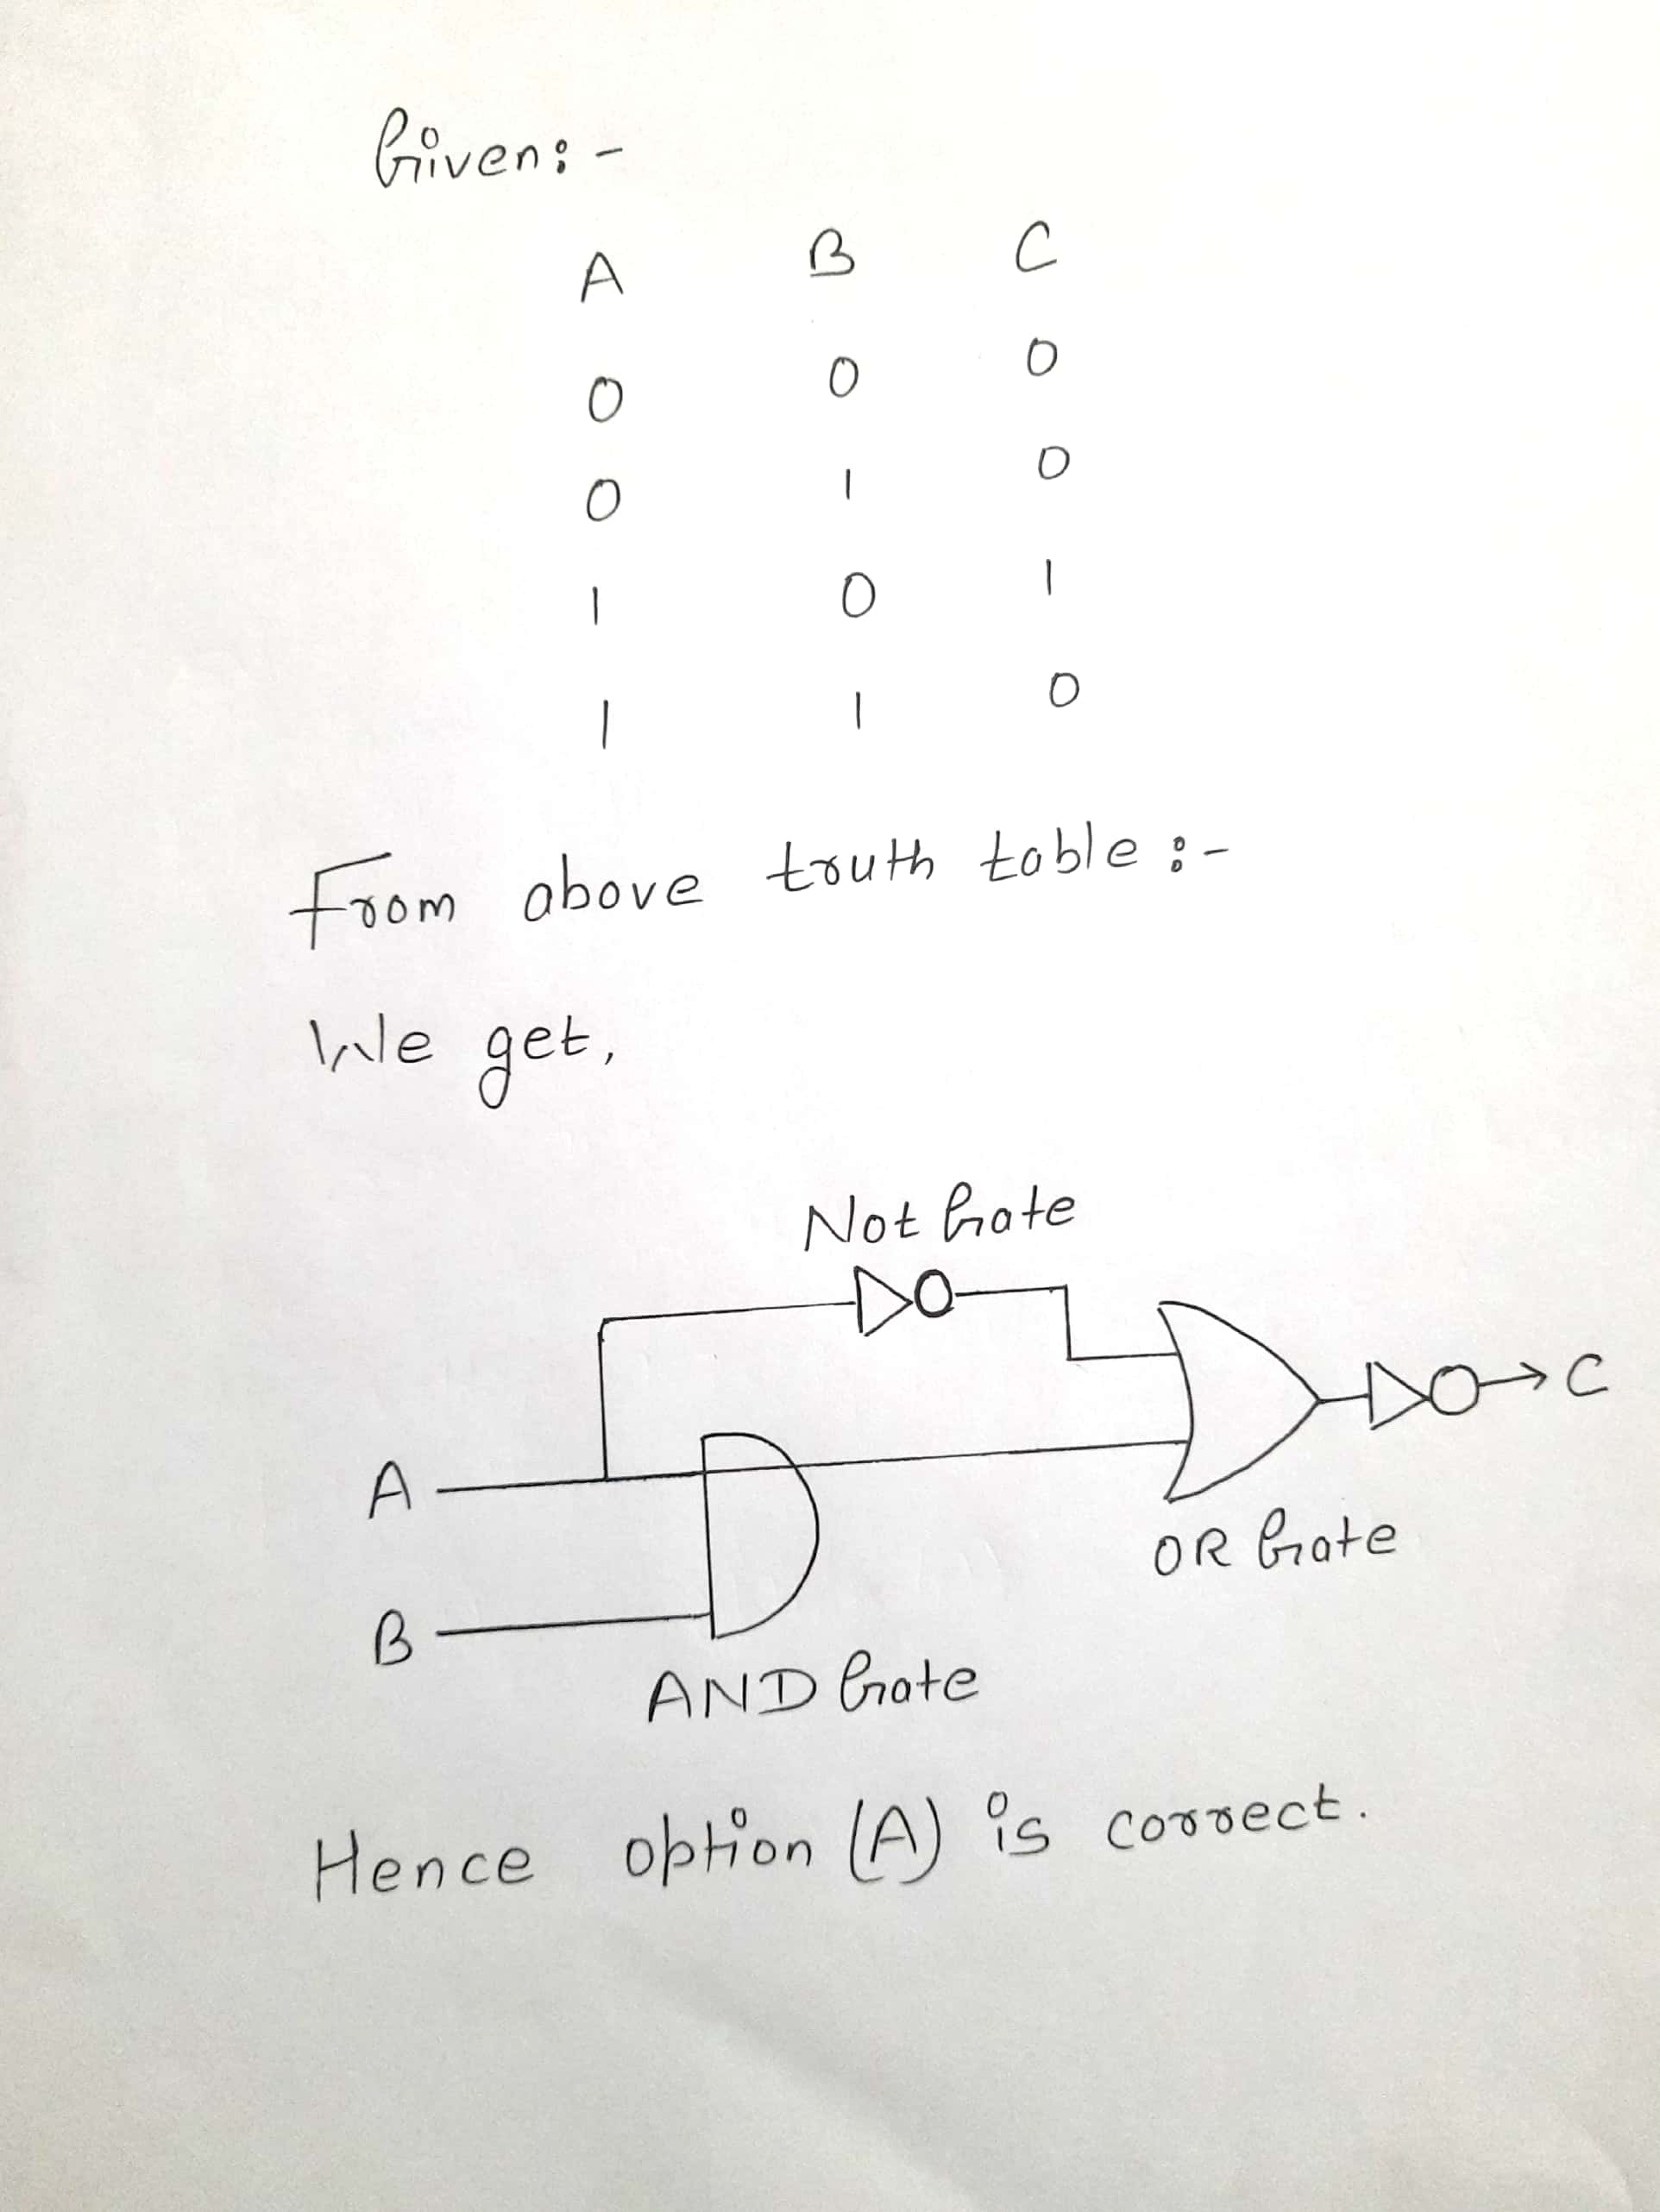 Given:-
A B C
0 0 0
0 1 0
1 0 1
1 1 0
From above truth table:-
We get,
Not Gate
A
B
C
OR Gate
AND Gate
Hence option (A) is correct.